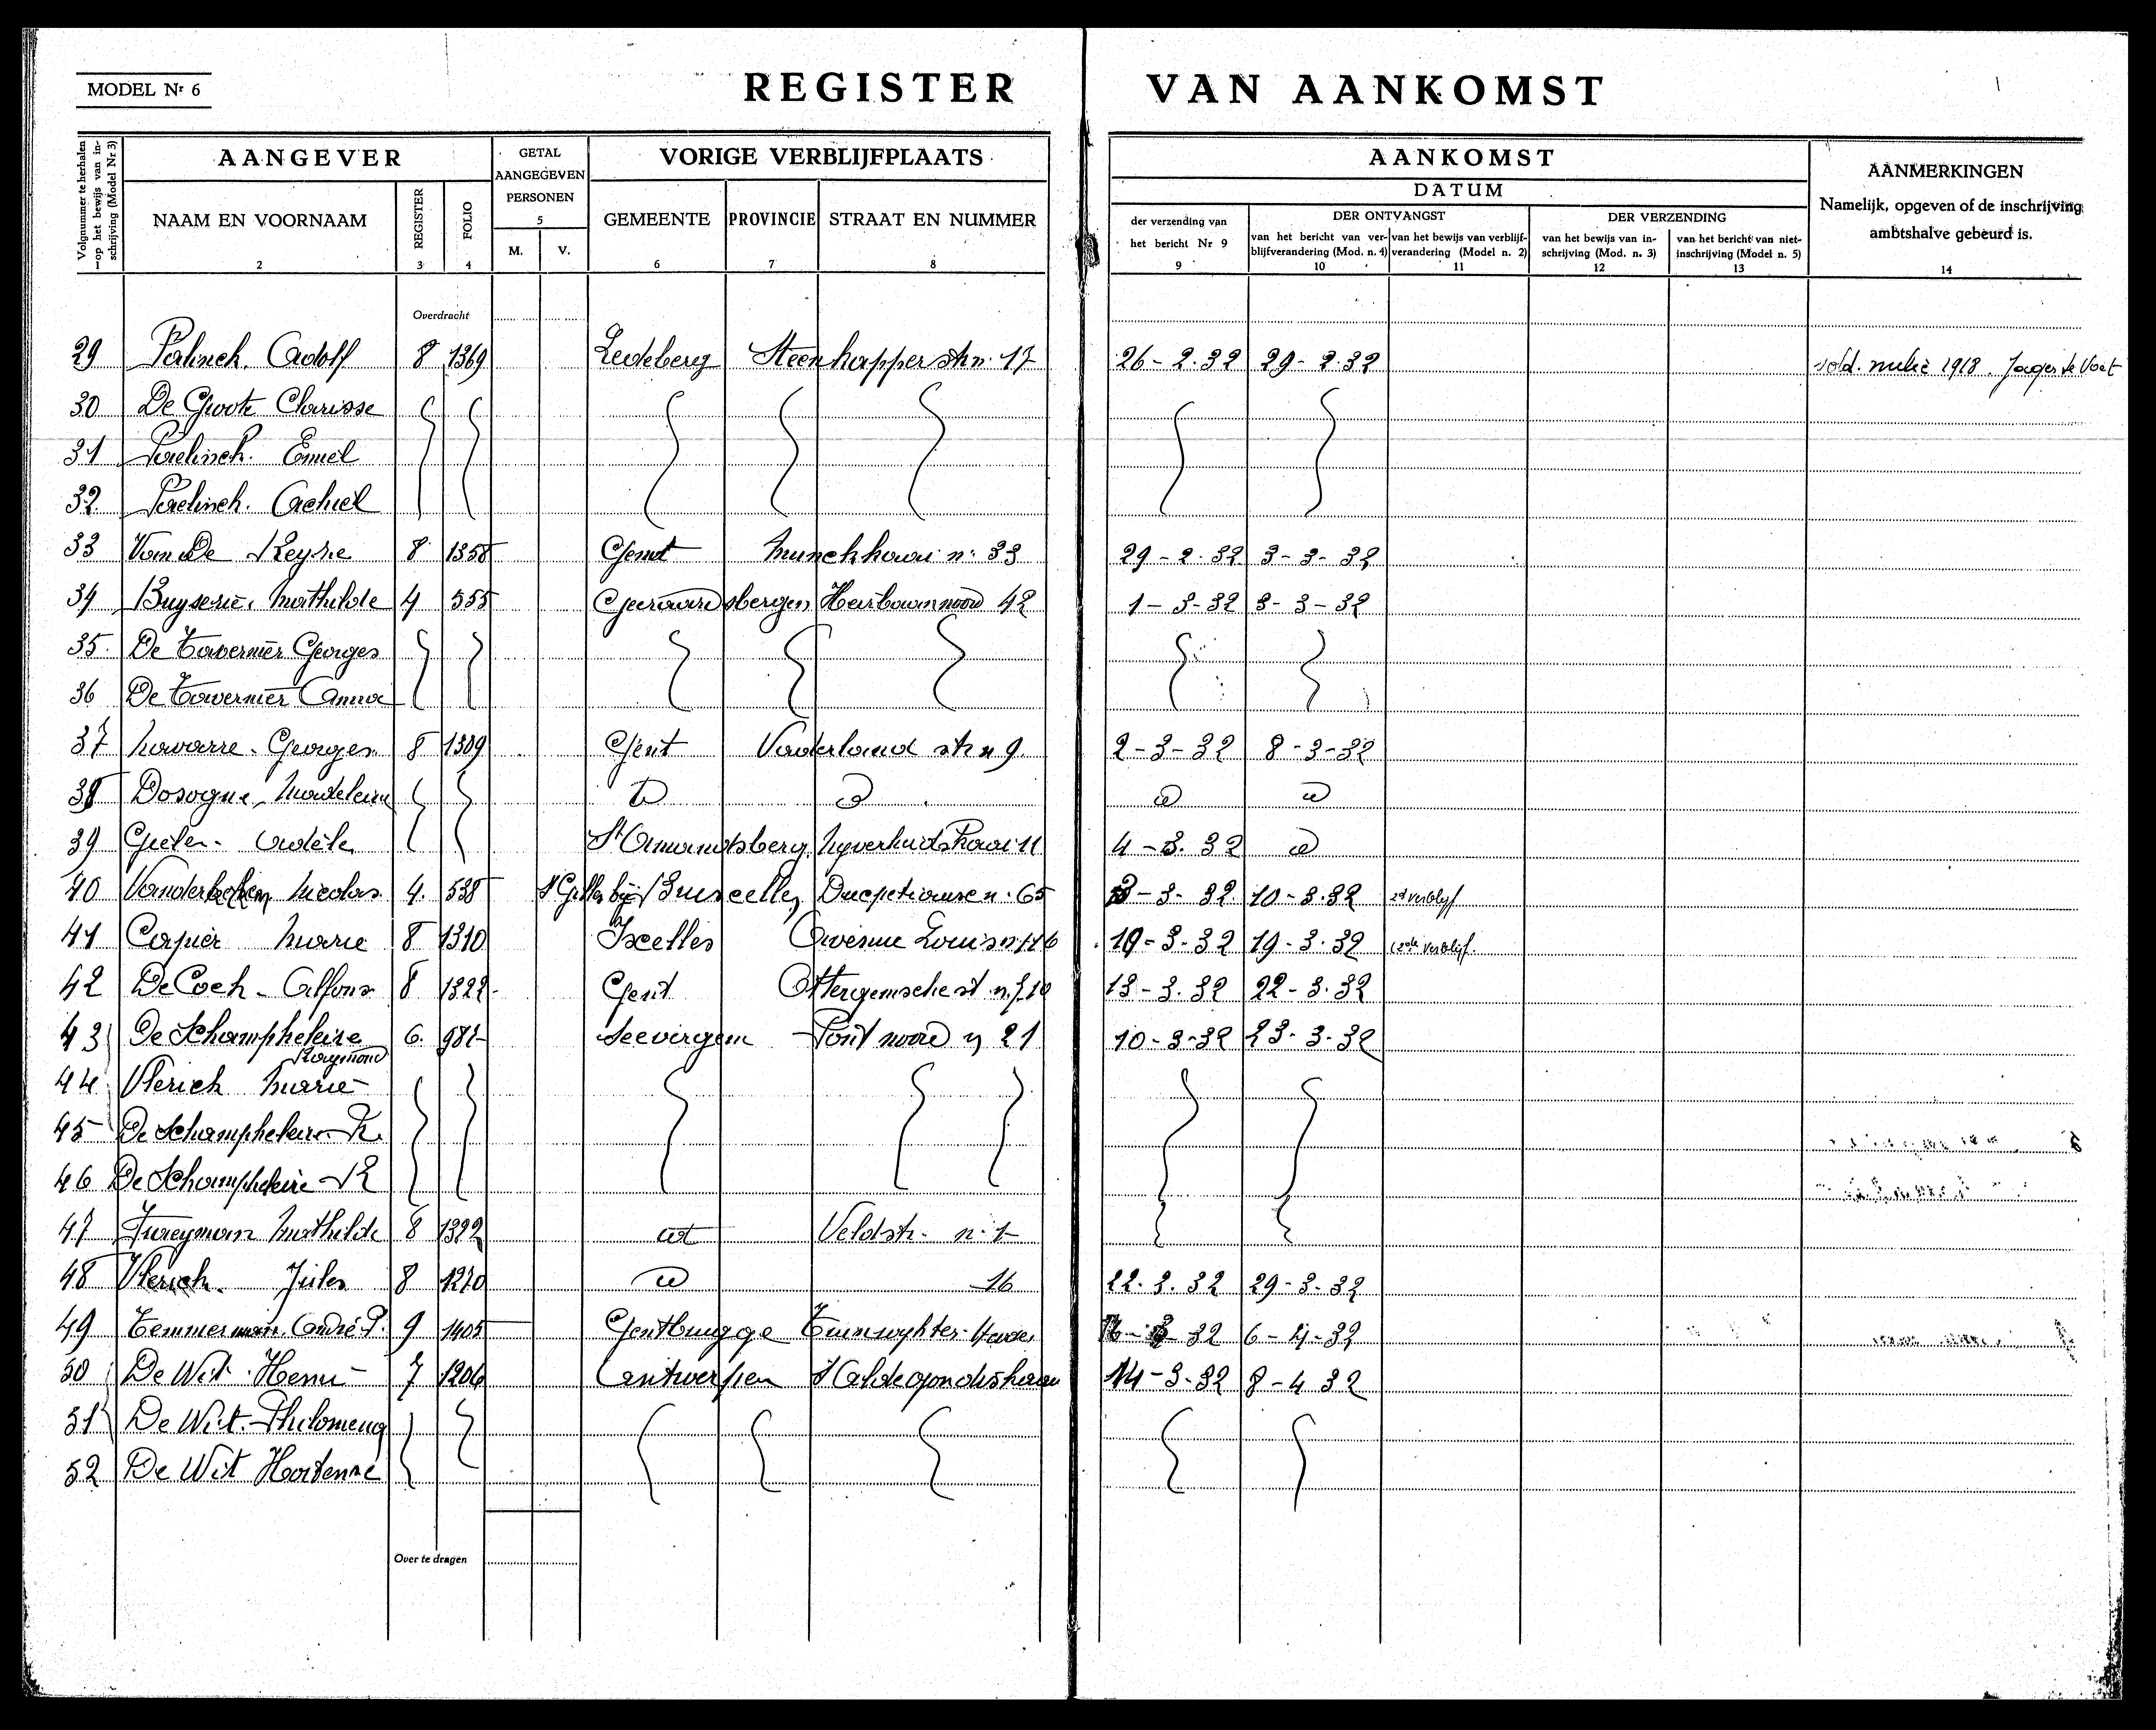 MODEL Nr 6
REGISTER VAN AANKOMST
Volgnummer te herhalen op het bewijs van inschrijving (Model Nr 3)
1
AANGEVER
NAAM EN VOORNAAM
2
REGISTER
3
FOLIO
4
GETAL AANGEGEVEN PERSONEN
5
M. V.
VORIGE VERBLIJFPLAATS
GEMEENTE
6
PROVINCIE
7
STRAAT EN NUMMER
8
AANKOMST
DATUM
der verzending van het bericht Nr 9
9
DER ONTVANGST
van het bericht van verblijfverandering (Mod. n. 4)
10
van het bewijs van verblijfverandering (Model n. 2)
11
DER VERZENDING
van het bewijs van inschrijving (Mod. n. 3)
12
van het bericht van niet-inschrijving (Model n. 5)
13
AANMERKINGEN
Namelijk, opgeven of de inschrijving ambtshalve gebeurd is.
14
Overdracht
29 Adolf 8 1369 Ledeberg Steenkapper str n. 17 26-2.32 29-2.32 1918
30 De Groote Clarisse
31 Emiel
32 Achiel
33 8 1358 Gent n: 33 29-2.32 3-3-32
34 Mathilde 4 555 Geeraardsbergen 42 1-3-32 3-3-32
35. De Tavernier Georges
36 De Tavernier Anna
37 Navarre. Georges 8 1309 Gent Vaderland str n 9. 2-3-32 8-3-32
38 Dosogne, Madeleine
39 Adèle St Amandsberg Nyverheidskaai 11 4-3.32
40 Nicolas 4. 538 St Gilles bij Brussel Ducpetiaux n. 65 3-3-32. 10-3.32 2d verblyf
41 Marie 8 1310 Ixelles Avenue Louis n 116 19-3-32 19-3-32 verblijf
42 De Cock - Alfons 8 1322 Gent Ottergemsche st 13-3.32 22-3.32
43 De Schampheleire Raymond 6. Seevergem Pont noord n 21 10-3-32 23-3-32
44 Vlerick Marie
45 De Schampheleire R.
46 De Schampheleire R
47 Mathilde 8 1322 Veldstr. n. 1
48 Vlerick. Jules 8 1270 16 22.3.32 29-3-32
49 Temmerman André P. 9 1405 Gentbrugge 32 6-4-32
50 De Wit Henri 7 1206 Antwerpen St Aldegondiskaai 14-3-32 8-4 32
51 De Wit Philomena
52 De Wit Hortense
Over te dragen